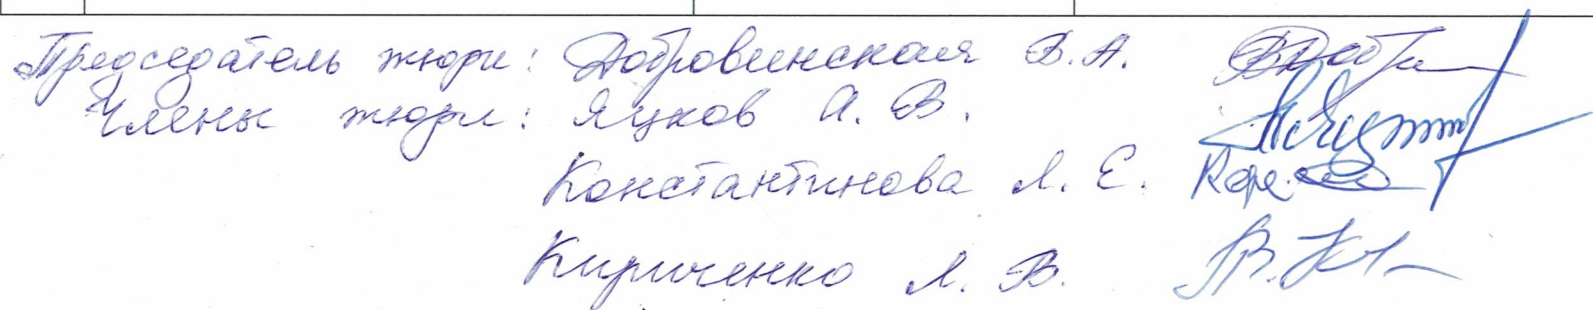 Председатель жюри: Добровинская В. А.
Члены жюри: Яцков А. В.
Константинова Л. Е.
Кириченко Л. В.